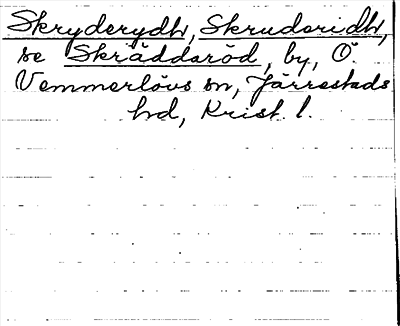 Skryderydh, Skruderidh,
se Skräddaröd, by, Ö.
Vemmerlövs sn, Järrestads
hd, Krist. l.